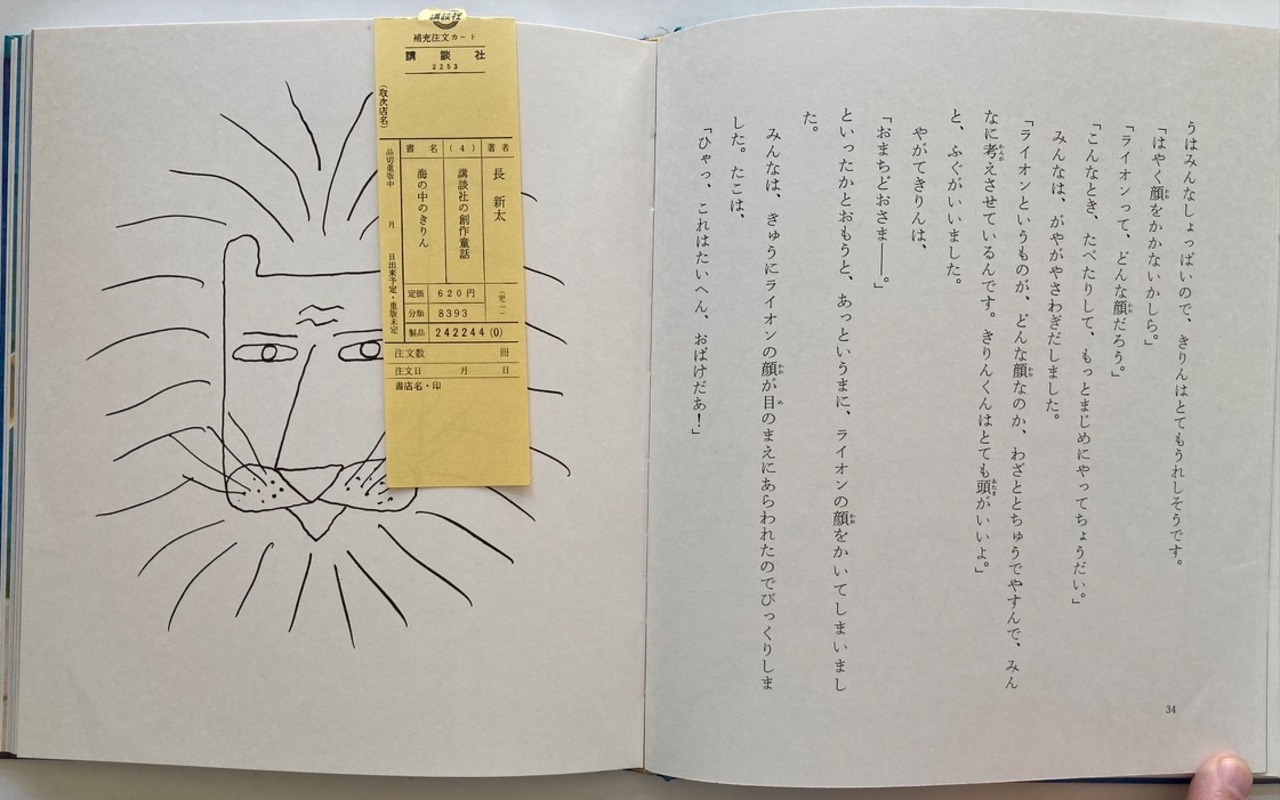 うはみんなしょっぱいので、きりんはとてもうれしそうです。
「はやく顔をかかないかしら。」
「ライオンって、どんな顔だろう。」
「こんなとき、たべたりして、もっとまじめにやってちょうだい。」
みんなは、がやがやさわぎだしました。
「ライオンというものが、どんな顔なのか、わざととちゅうでやすんで、みん
なに考えさせているんです。きりんくんはとても頭がいいよ。」
と、ふぐがいいました。
やがてきりんは、
「おまちどおさま――。」
といったかとおもうと、あっというまに、ライオンの顔をかいてしまいまし
た。
みんなは、きゅうにライオンの顔が目のまえにあらわれたのでびっくりしま
した。たこは、
「ひゃっ、これはたいへん、おばけだあ！」
34
講談社
補充注文カード
講談社
2253
(取次店名)
品切重版中 月 日出来予定・重版未定
著者 長 新太
(4) 講談社の創作童話
書名 海の中のきりん
定価 620円
分類 8393
製品 242244(0)
注文数 冊
注文日 月 日
書店名・印